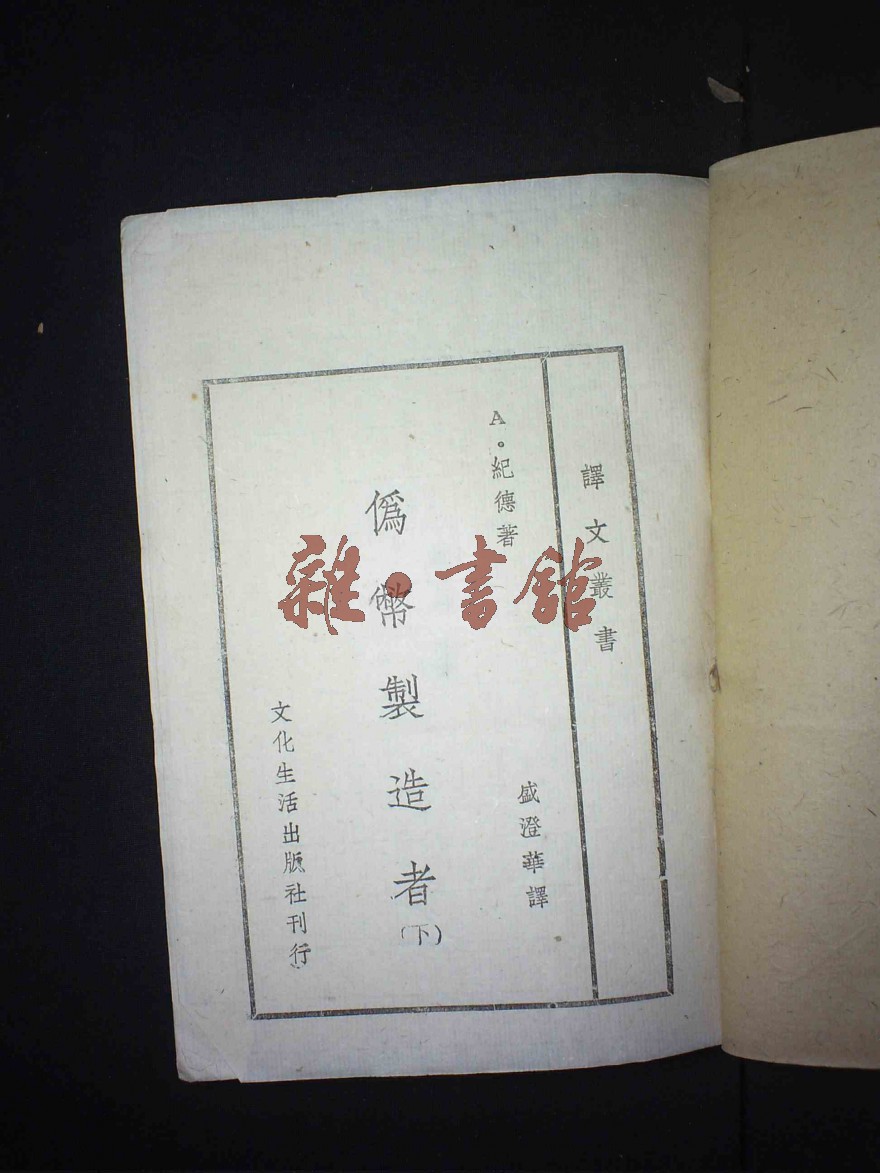 譯文叢書
A・紀德著
盛澄華譯
僞幣製造者
(下)
文化生活出版社刊行
雜・書館